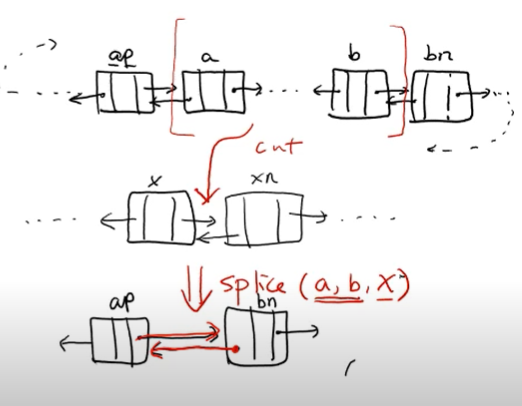 ap a b bn
cut
x xn
splice (a, b, x)
ap bn